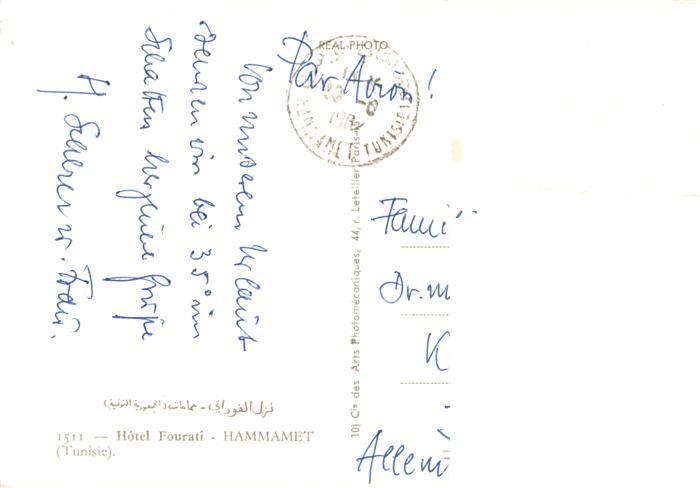 REAL-PHOTO
Par Avion!
HAMMAMET TUNISIE
Von unserem Urlaub
senden wir bei 35° im
Schatten herzliche Grüße
H. u. Frau.
Fami
Dr. m
K
Allem
10) Cie des Arts Photomécaniques, 44, r. Letellier Paris-
نزل الفوراتي - حمامات (الجمهورية التونسية)
1511 — Hôtel Fourati - HAMMAMET
(Tunisie).